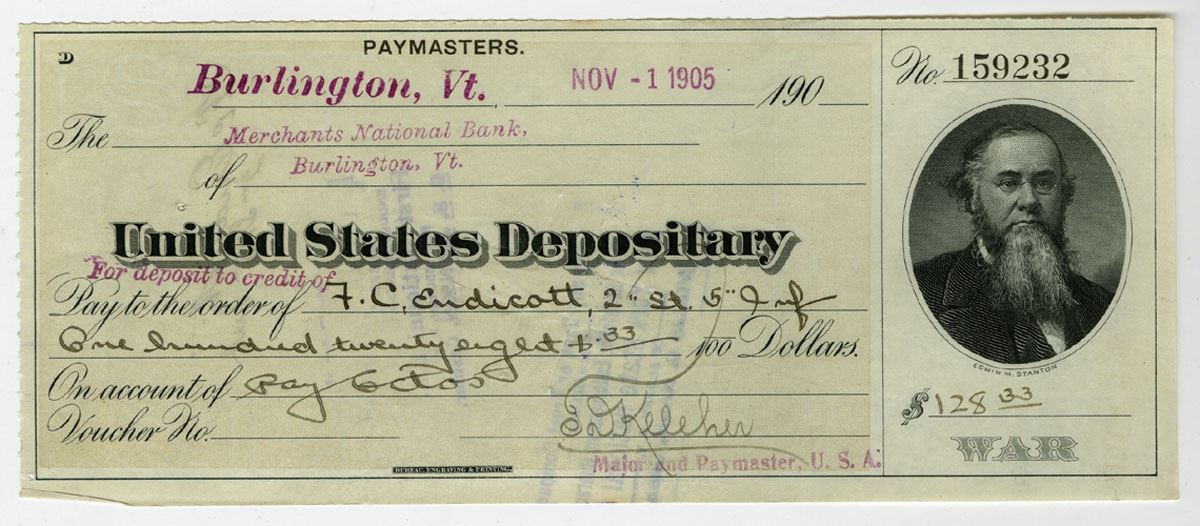 D
PAYMASTERS.
Burlington, Vt. NOV -1 1905 190
No. 159232
The Merchants National Bank,
of Burlington, Vt.
United States Depositary
For deposit to credit of
Pay to the order of F. C. Endicott, 2" St. 5" Inf
One hundred twenty eight & .33 100 Dollars.
On account of Pay Octo
Voucher No.
Keleher
Major and Paymaster, U. S. A.
BUREAU, ENGRAVING & PRINTING.
EDWIN M. STANTON
$ 128 33
WAR